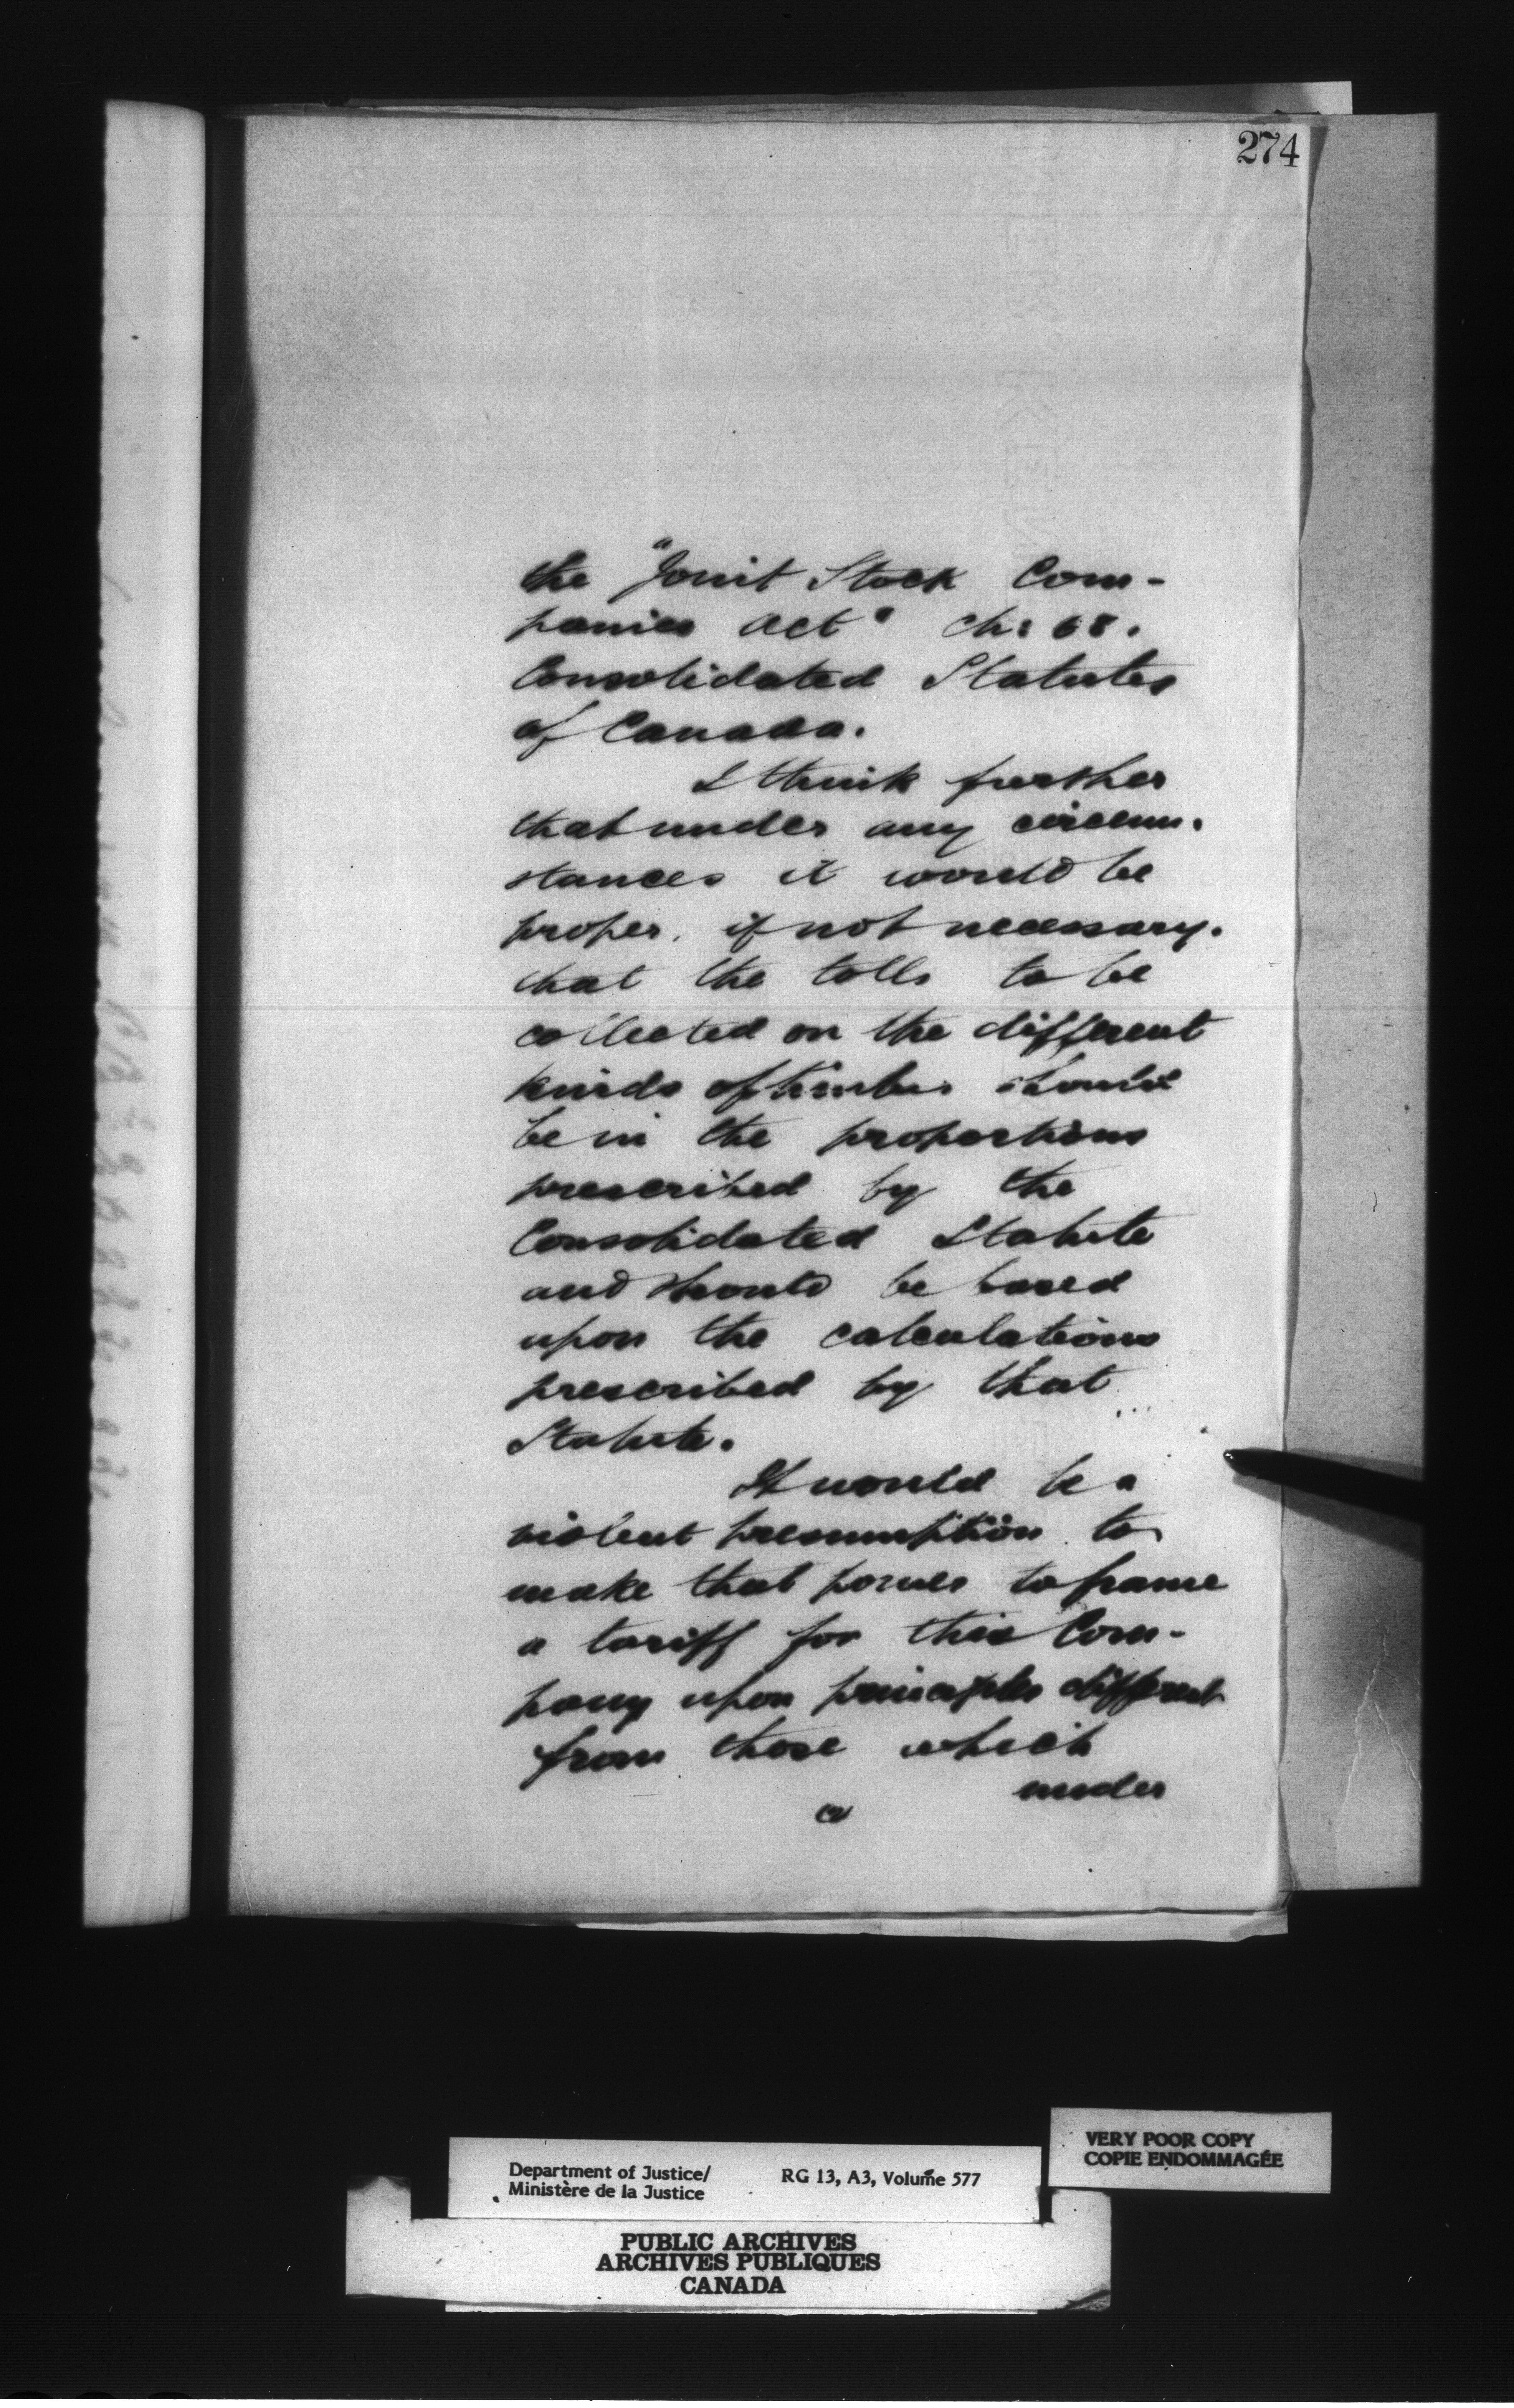 274
the "Joint Stock Com-
panies Act" ch: 68.
Consolidated Statutes
of Canada.
I think further
that under any circum-
stances it would be
proper, if not necessary,
that the tolls to be
collected on the different
kinds of timber should
be in the proportions
prescribed by the
Consolidated Statute
and should be based
upon the calculations
prescribed by that
Statute.
It would be a
violent presumption to
make that power to frame
a tariff for this Com-
pany upon principles different
from those which
under
VERY POOR COPY
COPIE ENDOMMAGÉE
Department of Justice/ RG 13, A3, Volume 577
Ministère de la Justice
PUBLIC ARCHIVES
ARCHIVES PUBLIQUES
CANADA